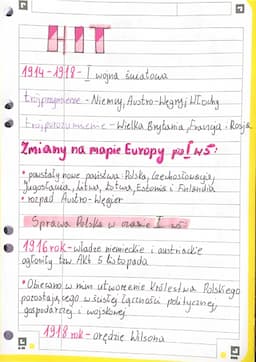 HIT
1914-1918 - I wojna światowa
trójprzymierze - Niemcy, Austro-Węgry i Włochy
trójporozumienie - Wielka Brytania, Francja i Rosja
Zmiany na mapie Europy po I wś:
• powstały nowe państwa: Polska, Czechosłowacja,
Jugosławia, Litwa, Łotwa, Estonia i Finlandia
• rozpad Austro-Węgier
Sprawa Polska w czasie I wś
1916 rok - władze niemieckie i austriackie
ogłosiły tzw. Akt 5 listopada
• Obiecano w nim utworzenie Królestwa Polskiego
pozostającego w ścisłej łączności politycznej,
gospodarczej i wojskowej
1918 rok - orędzie Wilsona